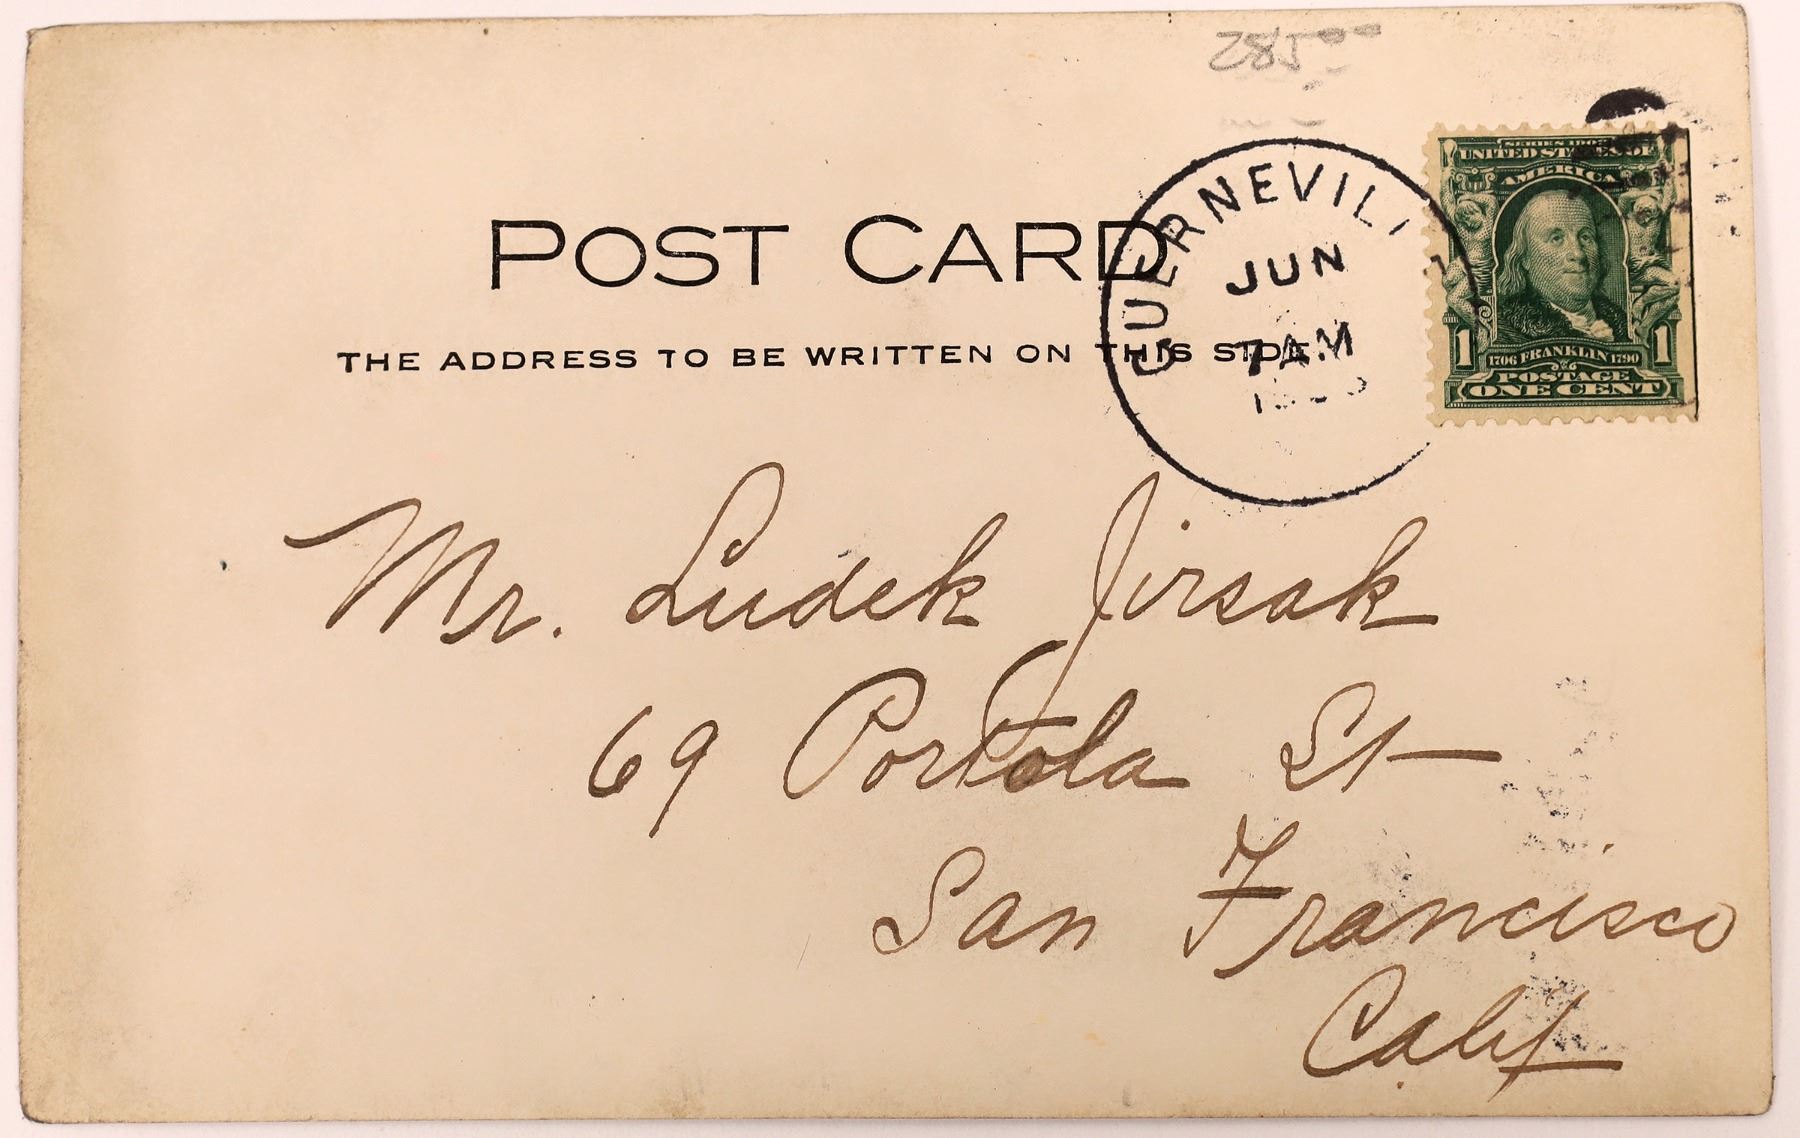 285
POST CARD
THE ADDRESS TO BE WRITTEN ON THIS SIDE.
GUERNEVILL
JUN
7AM
SERIES 1902
UNITED STATES OF
AMERICA
1 1706 FRANKLIN 1790 1
POSTAGE
ONE CENT
Mr. Ludek Jirsak
69 Portola St
San Francisco
Calif